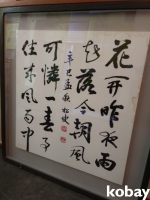 花開昨夜雨
花落今朝風
可憐一春事
往來風雨中
辛巳孟秋
kobay